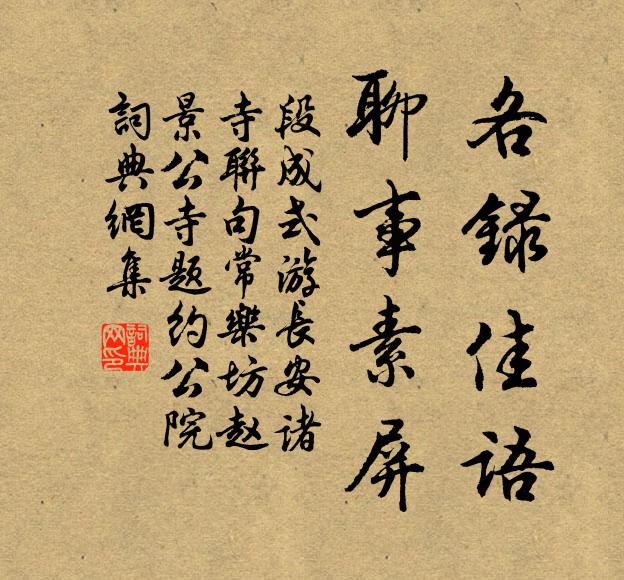 各録佳語
聊事素屏
段成式游長安諸
寺聯句常樂坊赵
景公寺題約公院
詞典網集
詞典
网印